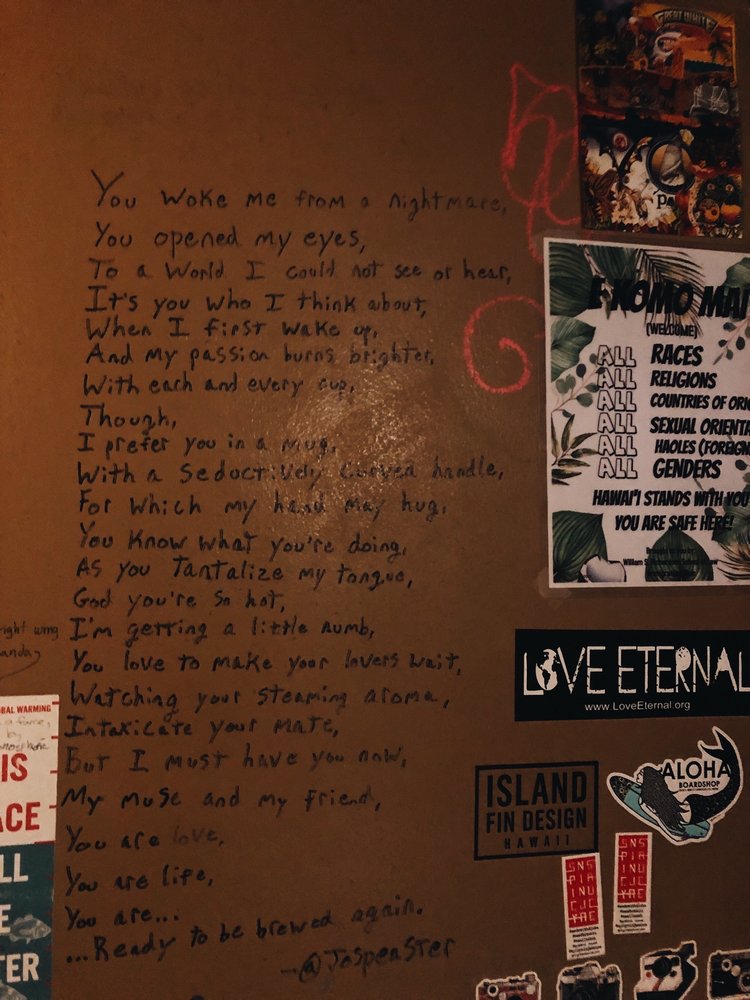 GREAT WHITE
You woke me from a nightmare,
You opened my eyes,
To a World I could not see or hear,
It's you who I think about,
When I first wake up,
And my passion burns brighter,
With each and every cup,
Though,
I prefer you in a mug,
With a seductively curved handle,
For which my hand may hug,
You know what you're doing,
As you tantalize my tongue,
God you're so hot,
I'm getting a little numb,
You love to make your lovers wait,
Watching your steaming aroma,
Intoxicate your mate,
But I must have you now,
My muse and my friend,
You are love,
You are life,
You are...
...Ready to be brewed again.
-@Jospenster
E KOMO MAI
(WELCOME)
ALL RACES
ALL RELIGIONS
ALL COUNTRIES OF ORI
ALL SEXUAL ORIENTA
ALL HAOLES (FOREIGN
ALL GENDERS
HAWAI'I STANDS WITH YOU
YOU ARE SAFE HERE!
right wing
BAL WARMING
IS
ACE
LL
E
TER
LOVE ETERNAL
www.LoveEternal.org
ALOHA
BOARDSHOP
ISLAND
FIN DESIGN
HAWAII